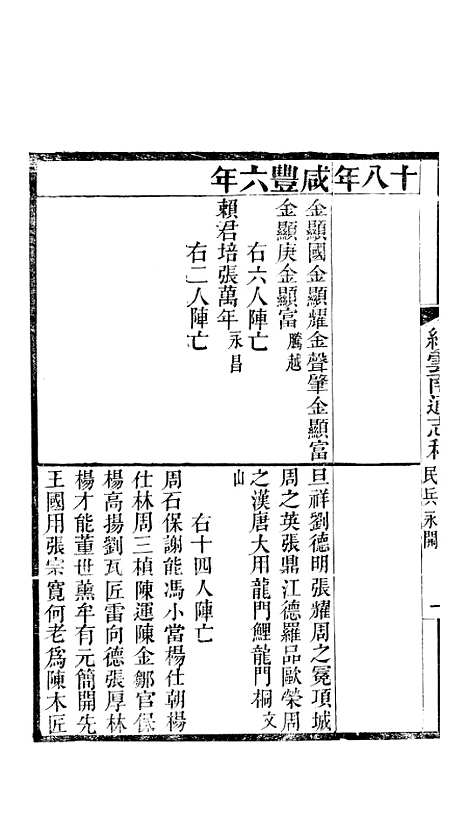 續雲南通志稿
民兵 永開
十八年
咸豐六年
金顯國金顯耀金聲肇金顯富
金顯庚金顯富 騰越
右六人陣亡
賴君培張萬年 永昌
右二人陣亡
旦祥劉德明張耀周之冕項城
周之英張鼎江德羅品歐榮周
之漢唐大用龍門鯉龍門桐 文
山
右十四人陣亡
周石保謝能馮小當楊仕朝楊
仕林周三楨陳運陳金鄒官保
楊高揚劉瓦匠雷向德張厚林
楊才能董世薰牟有元簡開先
王國用張宗寬何老為陳木匠